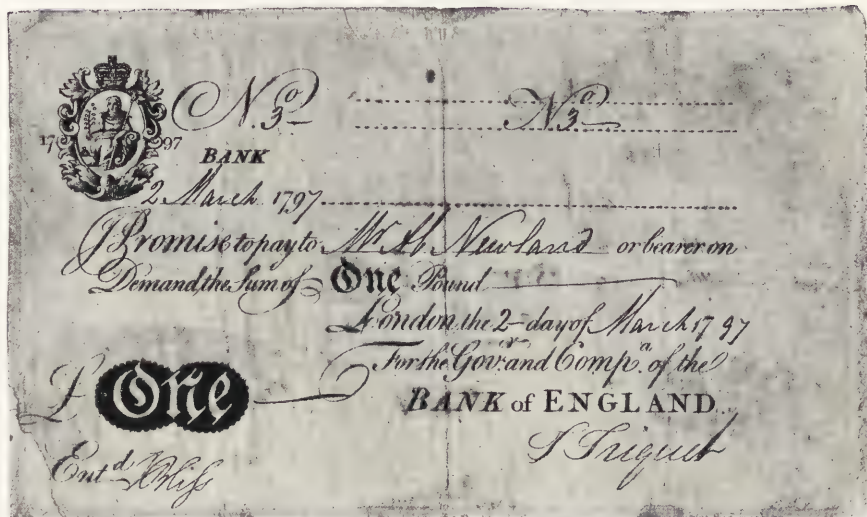 No 3 No 3
17 97
BANK
2 March 1797
I Promise to pay to Mr Ab Newland or bearer on
Demand, the Sum of One Pound
London the 2 day of March 1797
For the Govr. and Compa. of the
£ One BANK of ENGLAND
Entd Triquet